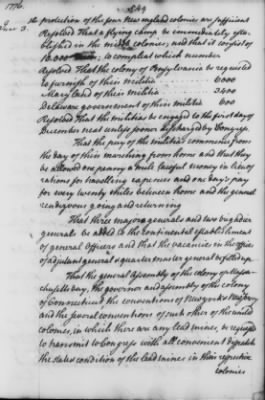 1776.
549
June 3.
the protection of the four New england colonies are sufficient
Resolved That a flying camp be immediately esta-
blished in the middle colonies, and that it consist of
10.000 men; to complete which number
Resolved That the colony of Pensylvania be requested
to furnish of their militia 6000
Maryland of their militia 3400
Delaware government of their militia 600
Resolved That the militia be engaged to the first day of
December next unless sooner discharged by Congress.
That the pay of the militia commence from
the day of their marching from home and that they
be allowed one penny a mile lawful money in lieu of
rations for travelling expences and one day's pay
for every twenty miles between home and the general
rendezvous going and returning
That three major generals and two brigadier
generals be added to the continental establishment
of general officers and that the vacancies in the offices
of adjutant general & quarter master general be filled up.
That the general assembly of the colony of Massa-
chusetts bay, the governor and assembly of the colony
of Connecticut the conventions of New york & New Jersey
and the several conventions of such other of the united
colonies, in which there are any lead mines, be requested
to transmit to Congress with all convenient dispatch
the state & condition of the lead mines in their respective
colonies